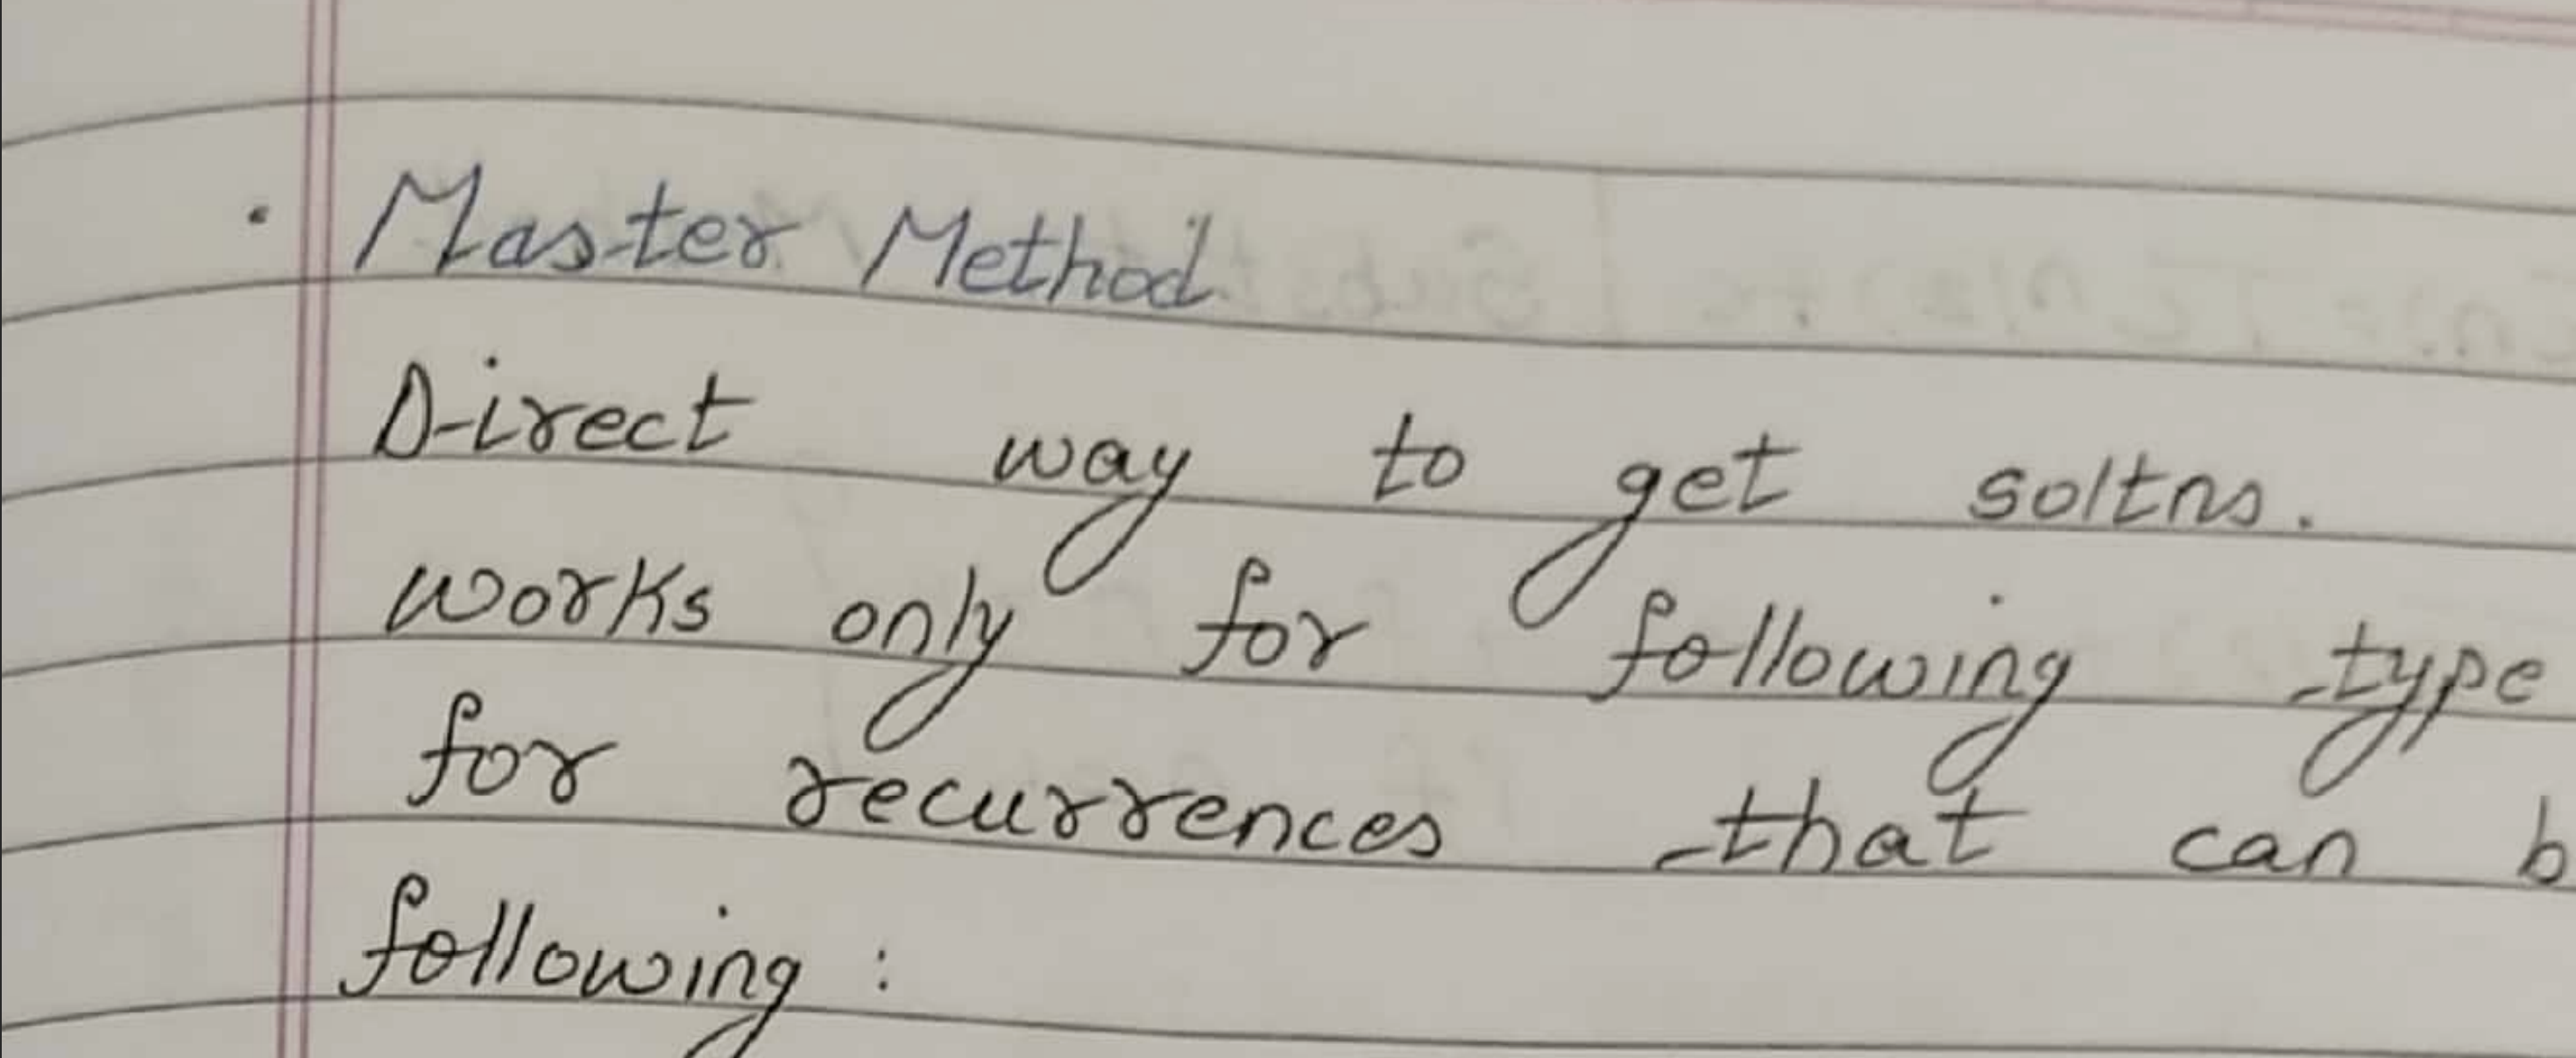 · Master Method
Direct way to get soltns.
works only for following type
for recurrences that can b
following :